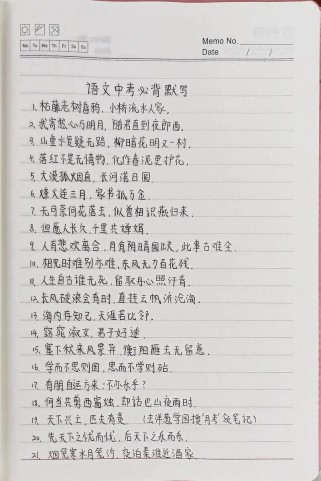 Memo No.
Mo Tu We Th Fr Sa Su
Date / /
语文中考必背默写
1. 枯藤老树昏鸦, 小桥流水人家.
2. 我寄愁心与明月, 随君直到夜郎西.
3. 山重水复疑无路, 柳暗花明又一村.
4. 落红不是无情物, 化作春泥更护花.
5. 大漠孤烟直, 长河落日圆.
6. 烽火连三月, 家书抵万金.
7. 无可奈何花落去, 似曾相识燕归来.
8. 但愿人长久, 千里共婵娟.
9. 人有悲欢离合, 月有阴晴圆缺, 此事古难全.
10. 相见时难别亦难, 东风无力百花残.
11. 人生自古谁无死, 留取丹心照汗青.
12. 长风破浪会有时, 直挂云帆济沧海.
13. 海内存知己, 天涯若比邻.
14. 窈窕淑女, 君子好逑.
15. 塞下秋来风景异, 衡阳雁去无留意.
16. 学而不思则罔, 思而不学则殆.
17. 有朋自远方来, 不亦乐乎?
18. 何当共剪西窗烛, 却话巴山夜雨时.
19. 天下兴亡, 匹夫有责. (去洋葱学园搜"月考"领笔记)
20. 先天下之忧而忧, 后天下之乐而乐.
21. 烟笼寒水月笼沙, 夜泊秦淮近酒家.